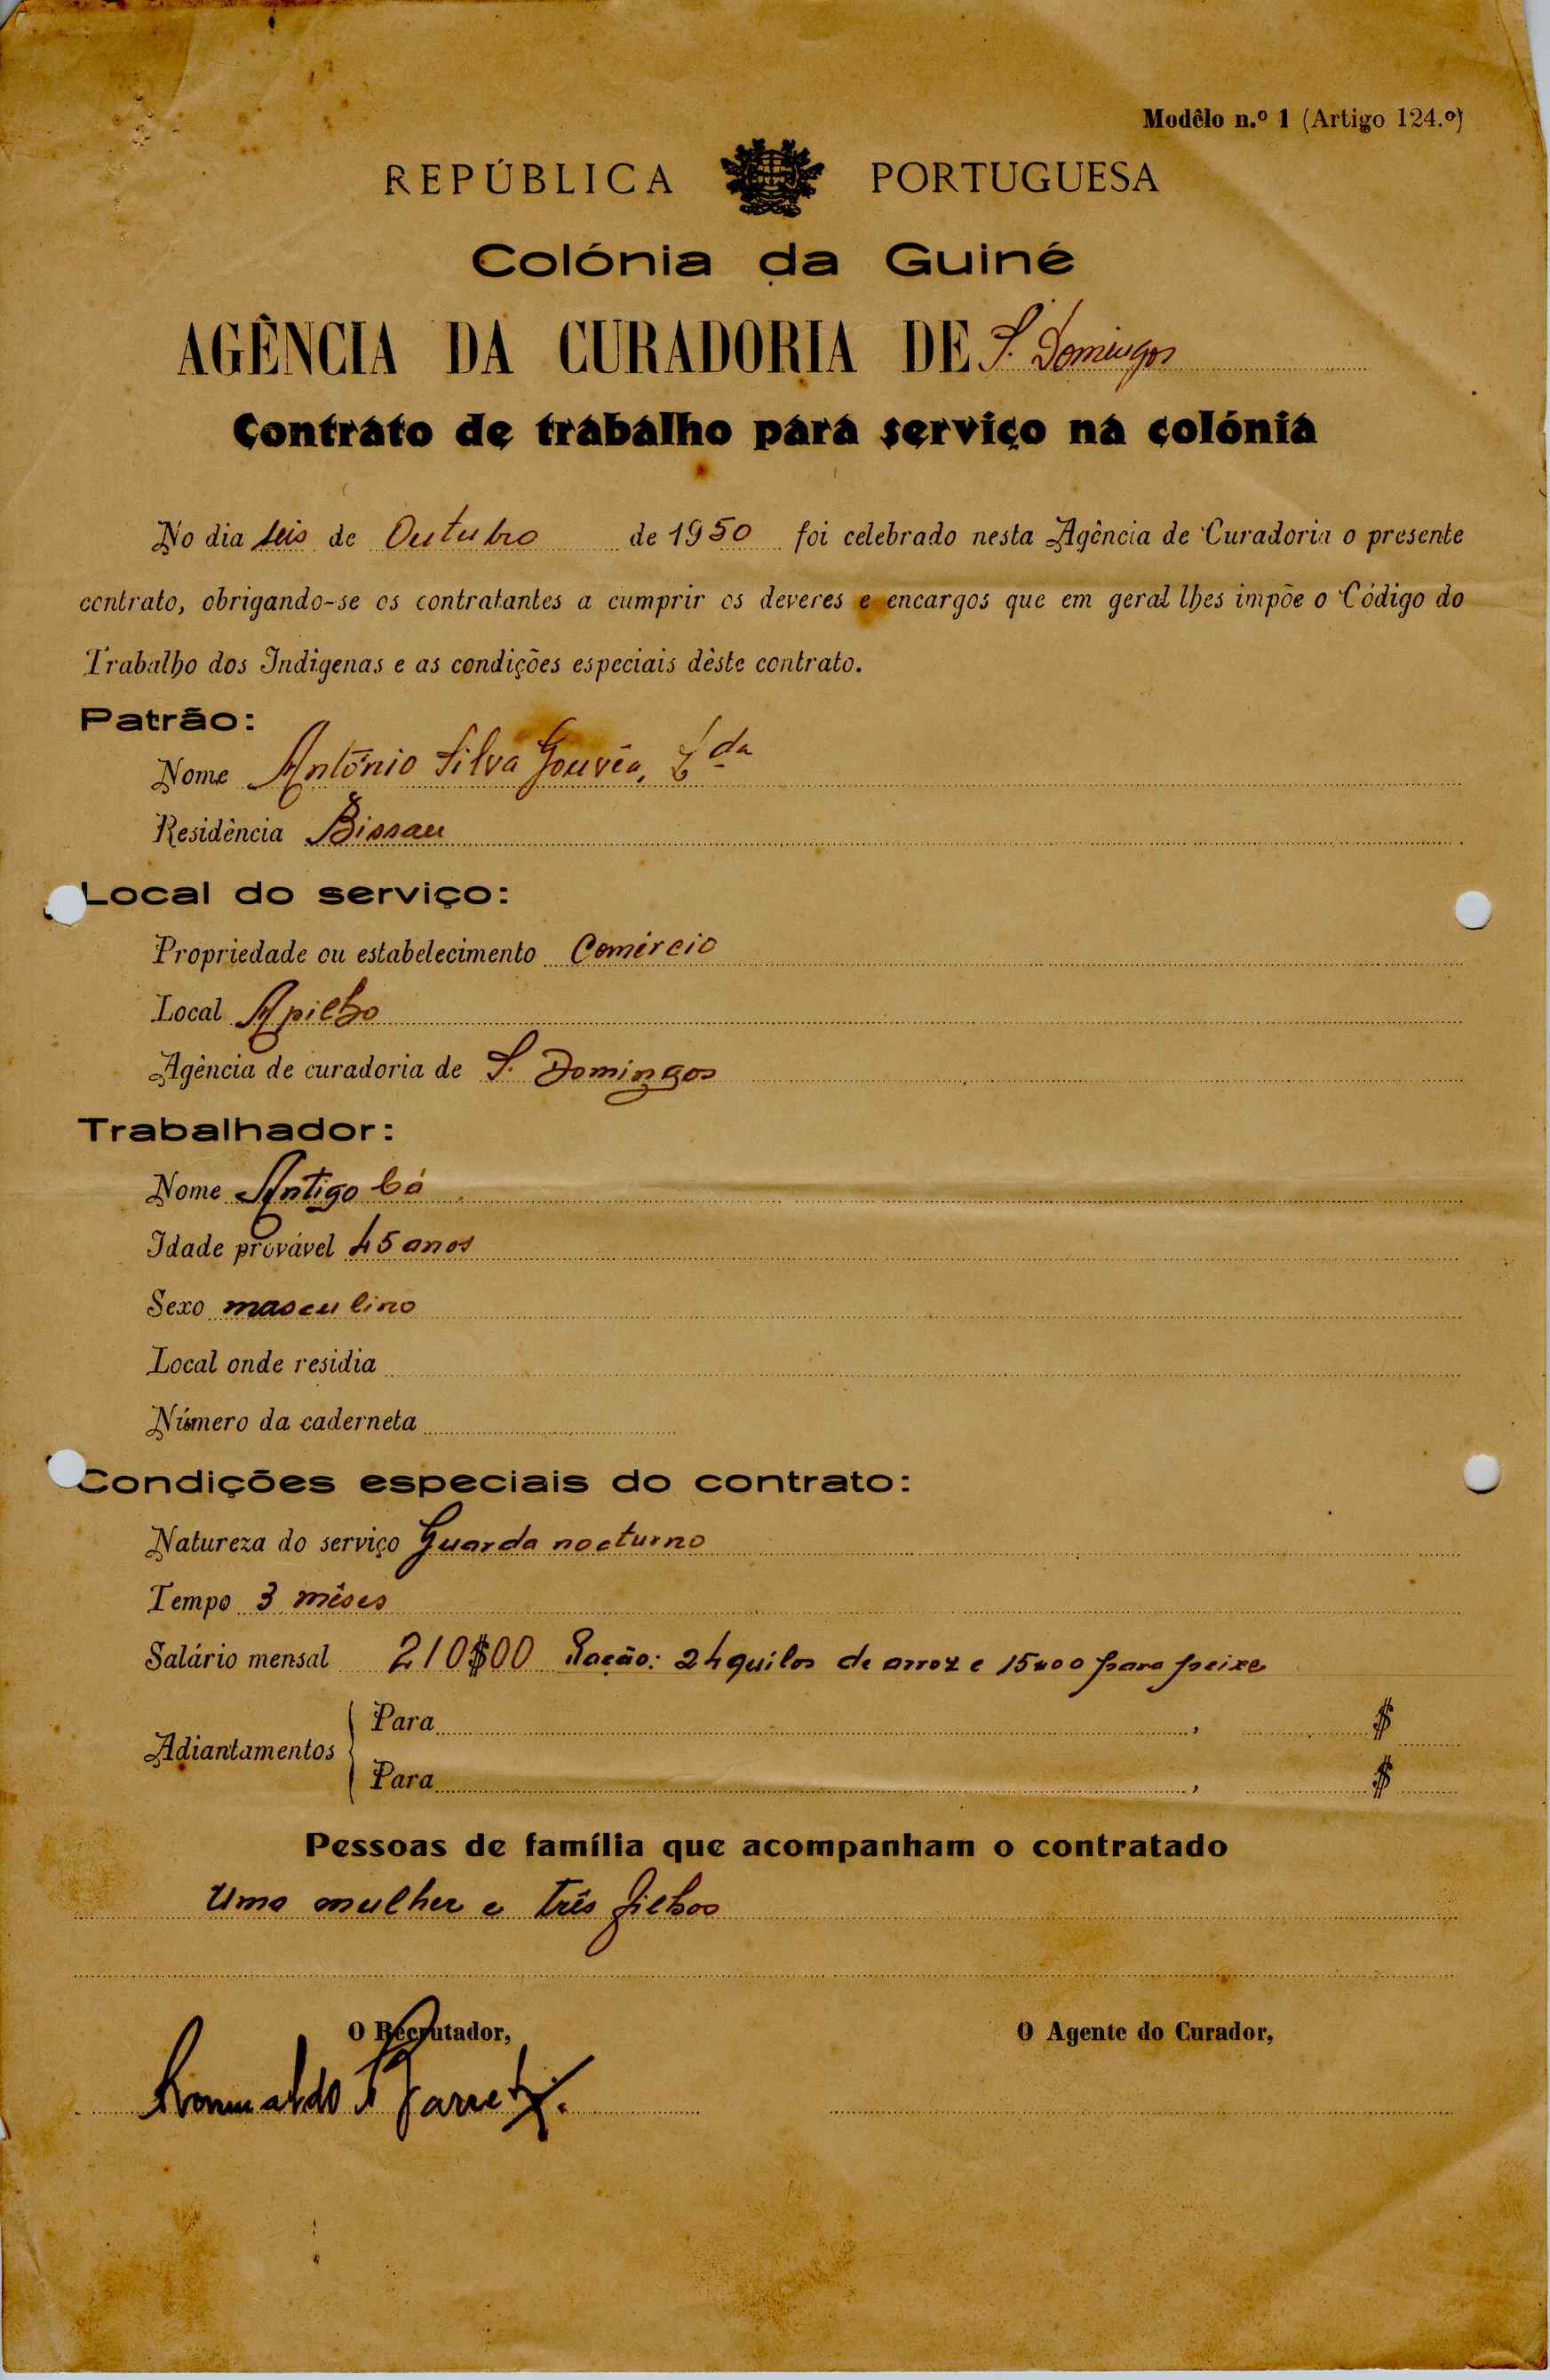 Modêlo n.º 1 (Artigo 124.º)
REPÚBLICA PORTUGUESA
Colónia da Guiné
AGÊNCIA DA CURADORIA DE S. Domingos
Contrato de trabalho para serviço na colónia
No dia seis de Outubro de 1950 foi celebrado nesta Agência de Curadoria o presente
contrato, obrigando-se os contratantes a cumprir os deveres e encargos que em geral lhes impõe o Código do
Trabalho dos Indigenas e as condições especiais dêste contrato.
Patrão:
Nome António Silva Gouvêa, Lda
Residência Bissau
Local do serviço:
Propriedade ou estabelecimento Comércio
Local Apilho
Agência de curadoria de S. Domingos
Trabalhador:
Nome Antigo Cá
Idade provável 45 anos
Sexo masculino
Local onde residia
Número da caderneta
Condições especiais do contrato:
Natureza do serviço Guarda nocturno
Tempo 3 mêses
Salário mensal 210$00 Ração: 24 quilos de arroz e 15$00 para peixe
Adiantamentos
Para , $
Para , $
Pessoas de família que acompanham o contratado
Uma mulher e três filhos
O Recrutador, O Agente do Curador,
Romualdo